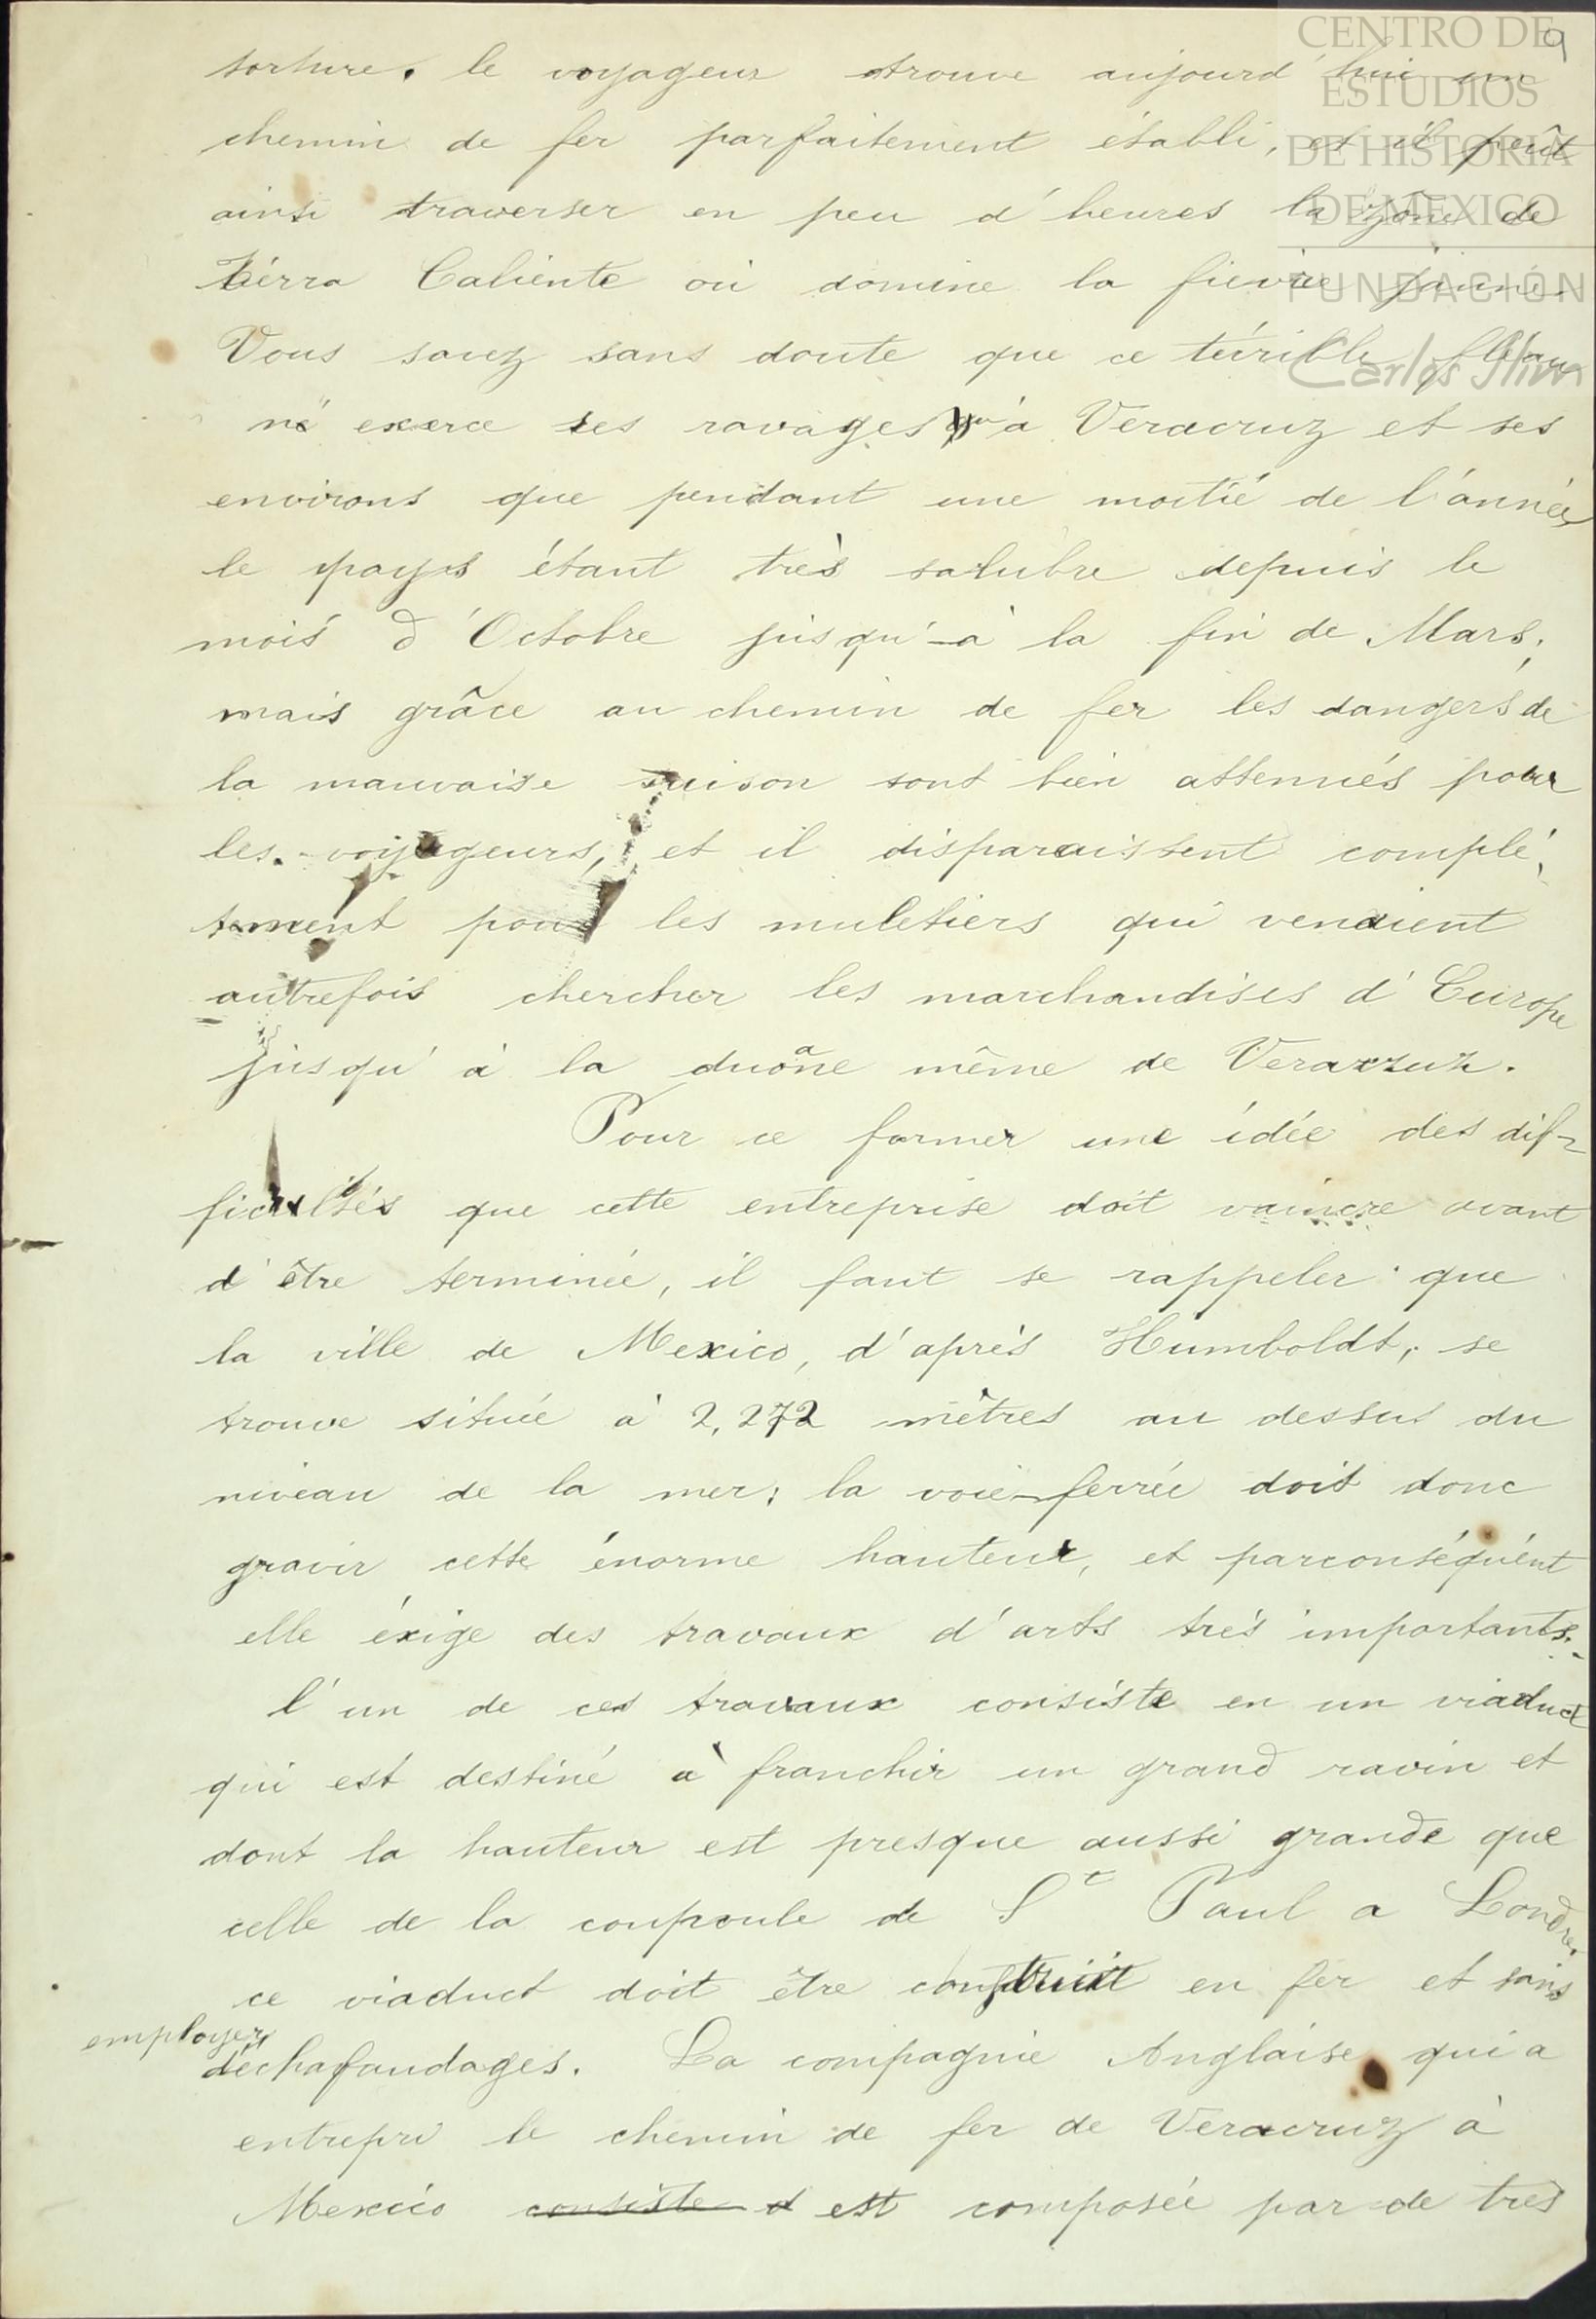 9
CENTRO DE
ESTUDIOS
DE HISTORIA
DE MEXICO
FUNDACIÓN
Carlos Slim
torture. le voyageur trouve aujourd'hui un
chemin de fer parfaitement établi, et il peût
ainsi traverser en peu d'heures la zône de
tiérra Caliénte où domine la fievre jaune
Vous savez sans doute que ce térrible fléau
n'exerce ses ravages qu'a Veracruz et ses
environs que pendant une moitié de l'année,
le pays étant très salubre depuis le
mois d'Octobre jusqu'-à la fin de Mars;
mais grâce au chemin de fer les dangers de
la mauvaise saison sont bien attenués pour
les voyageurs, et il disparaissent complé-
tement pour les muletiers qui venaient
autrefois chercher les marchandises d'Europe
jusqu'à la duoane même de Verazruz.
Pour ce former une idée des dif-
ficultés que cette entreprise doit vaincre avant
d'être terminée, il faut se rappeler que
la ville de Mexico, d'aprés Humboldt, se
trouve située à 2,272 mêtres au dessus du
niveau de la mer; la voie-ferrée doit donc
gravir cette énorme hauteur, et parconséquént
elle éxige des travaux d'arts trés importants.
l'un de ces travaux consiste en un viaduct
qui est destiné à franchir un grand ravin et
dont la hauteur est presque aussi grande que
celle de la coupoule de St Paul a Londres
ce viaduct doit être construit en fer et sans
employer
déchafaudages. La compagnie Anglaise qui a
entrepri le chemin de fer de Veracruz à
Mexico consiste d est composée par de tres